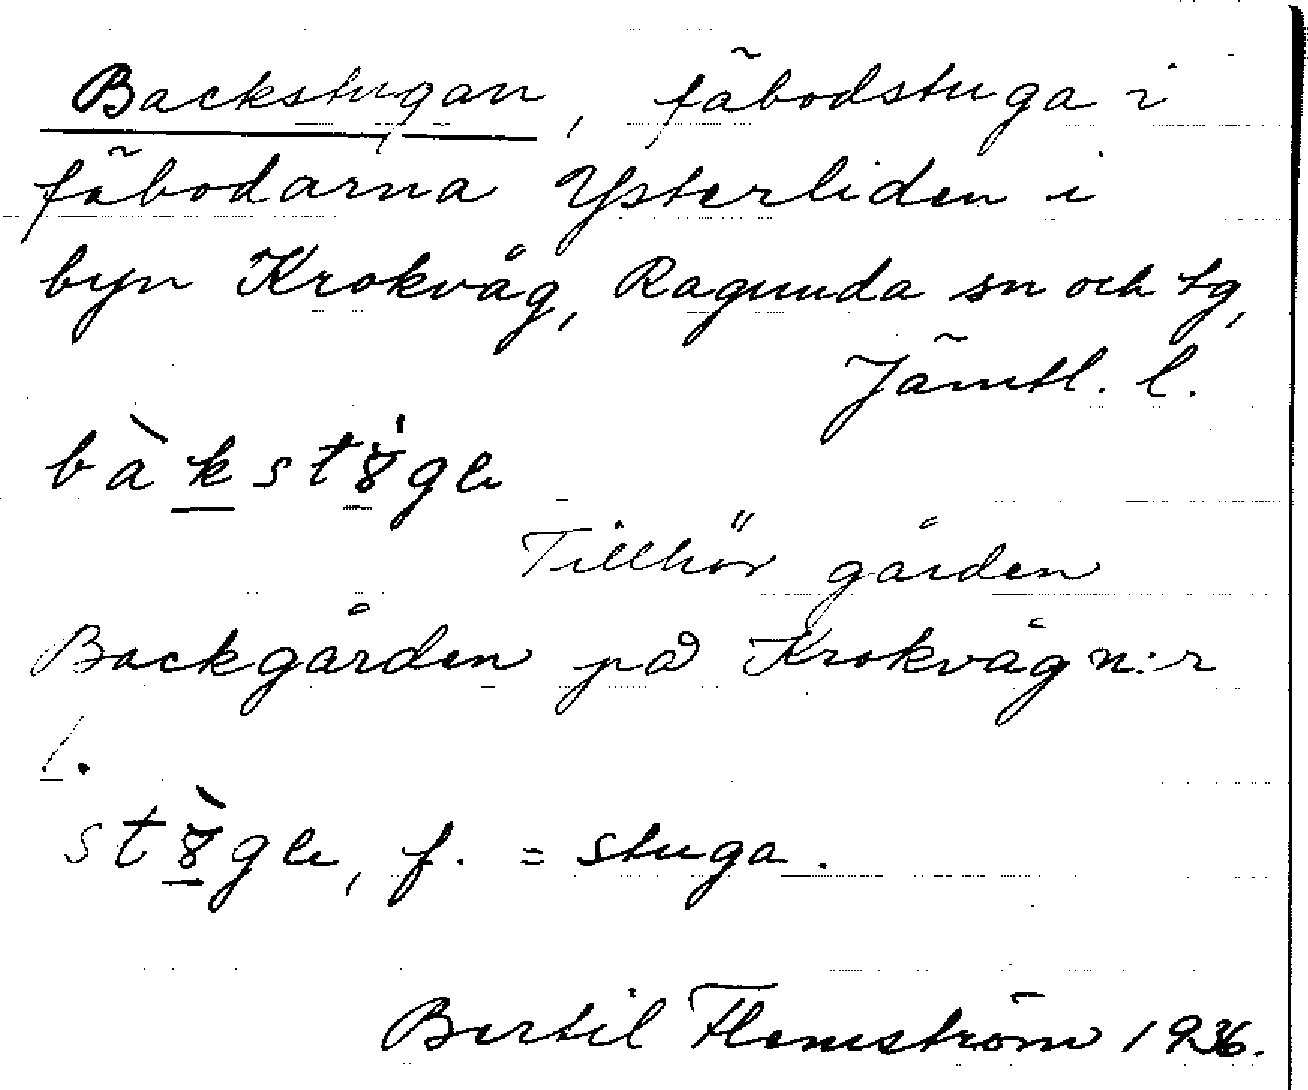 Backstugan, fäbodstuga i
fäbodarna Ysterliden i
byn Krokvåg, Ragunda sn och tg,
Jämtl. l.
Tillhör gården
Backgården på Krokvåg n:r
1.
f. = stuga.
Bertil Flemström 1936.